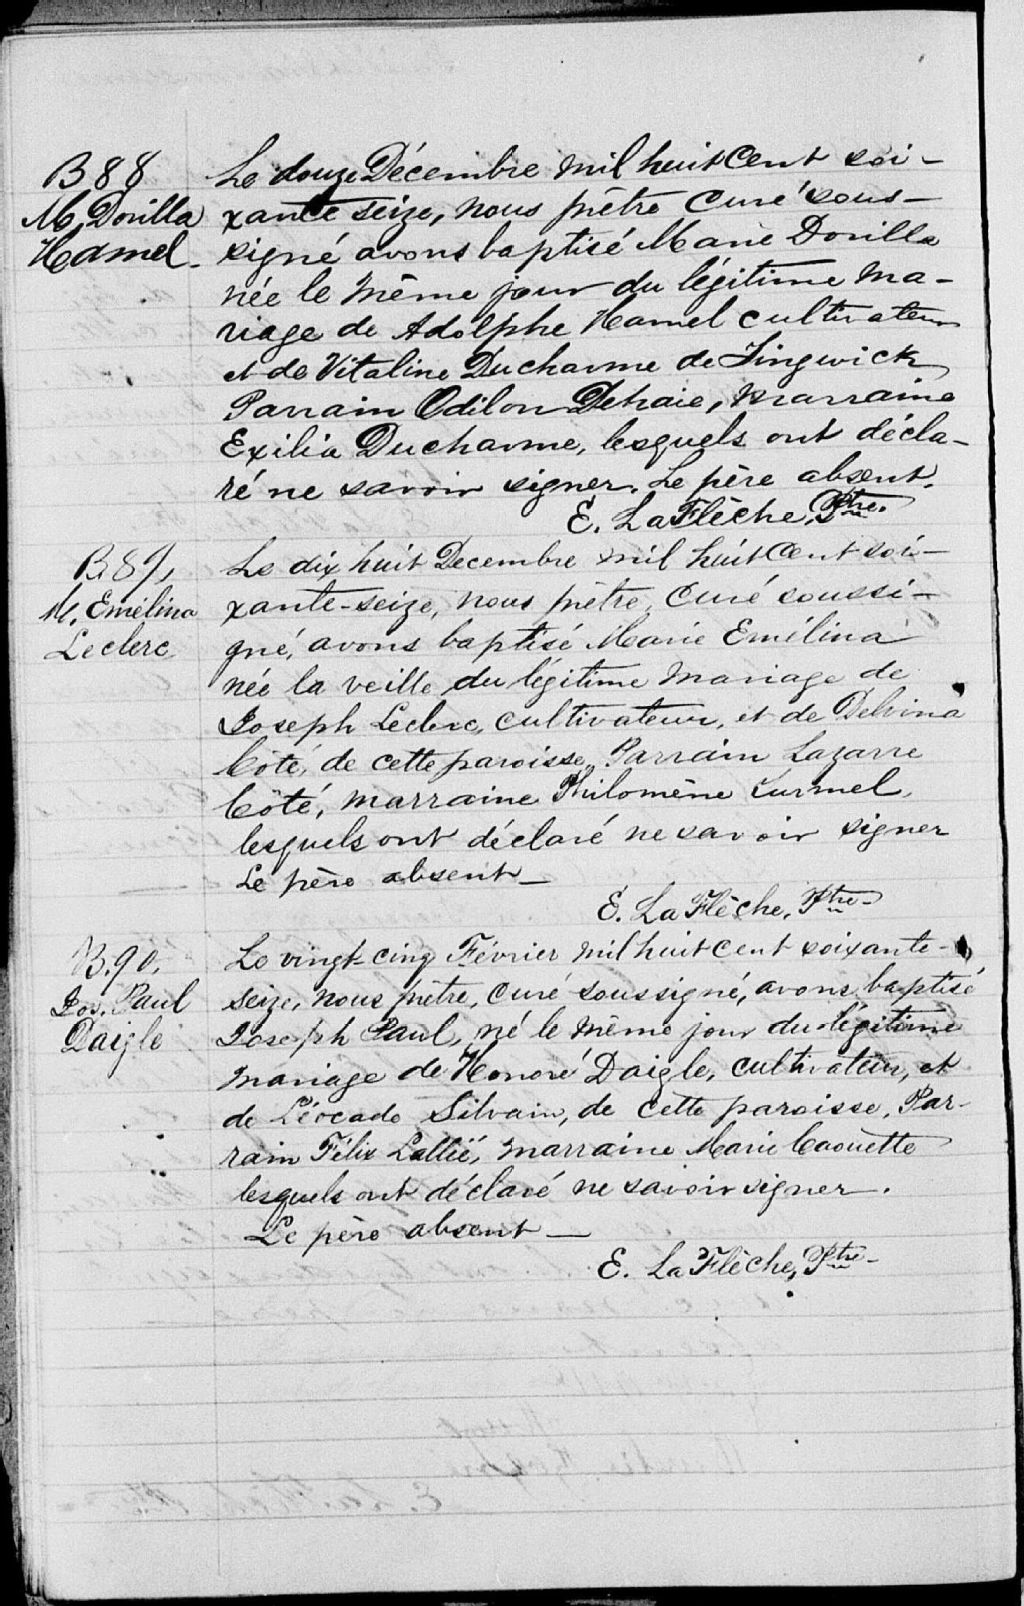 B 88
M. Dorilla
Hamel.
Le douze Décembre mil huit Cent soi-
xante seize, nous prêtre Curé sous-
signé avons baptisé Marie Dorilla
née le même jour du légitime ma-
riage de Adolphe Hamel cultivateur
et de Vitaline Ducharme de Lingwick
Parrain Odilon Dehaie, marraine
Exilia Ducharme, lesquels ont décla-
ré ne savoir signer. Le père absent.
E. LaFlèche, Ptre.
B. 89,
M. Emélina
Leclerc
Le dix huit Decembre mil huit Cent soi-
xante-seize, nous prêtre, Curé soussi-
gné, avons baptisé Marie Emélina
née la veille du légitime mariage de
Joseph Leclerc, cultivateur, et de Delvina
Côté, de cette paroisse, Parrain Lazarre
Côté, marraine Philomène Lurmel,
lesquels ont déclaré ne savoir signer
Le père absent—
E. LaFlèche, Ptre-
B. 90.
Jos. Paul
Daigle
Le vingt-cinq Février mil huit cent soixante-
seize, nous prêtre, curé soussigné, avons baptisé
Joseph Paul, né le même jour du légitime
mariage de Honoré Daigle, cultivateur, et
de Léocade Silvain, de cette paroisse. Par-
rain Félix, marraine Marie Caouette
lesquels ont déclaré ne savoir signer.
Le père absent—
E. LaFlèche, Ptre-